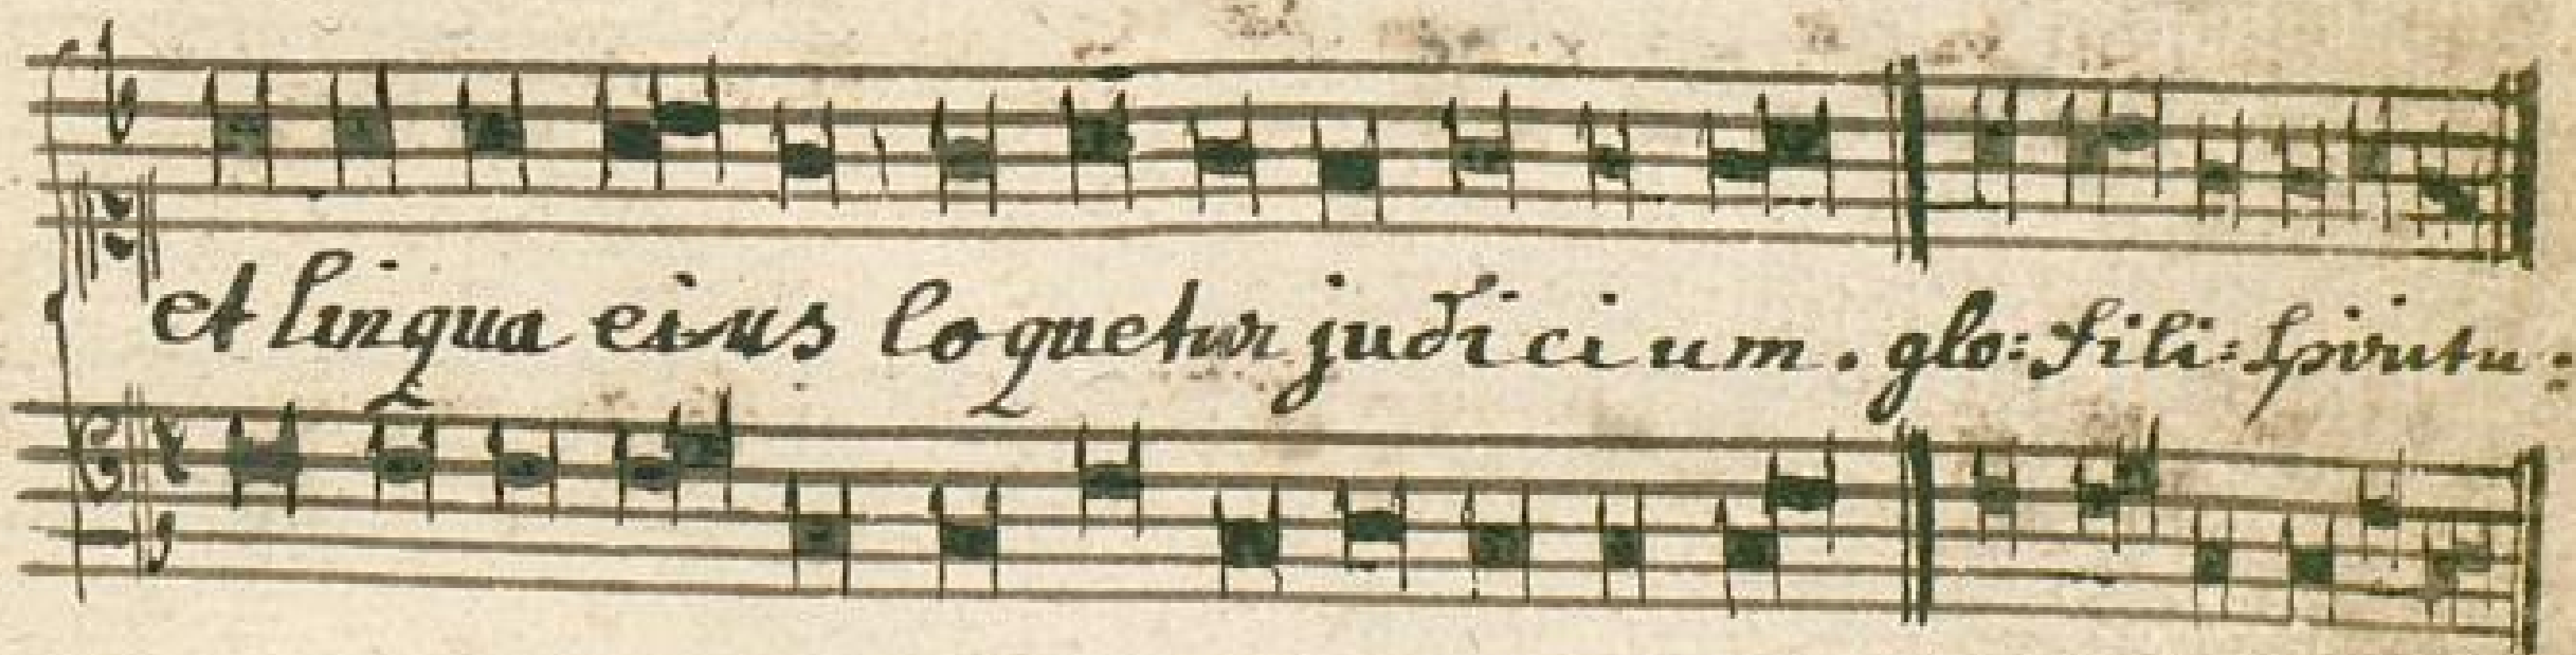 et lingua eius loquetur judicium. glo: fili: spiritu: